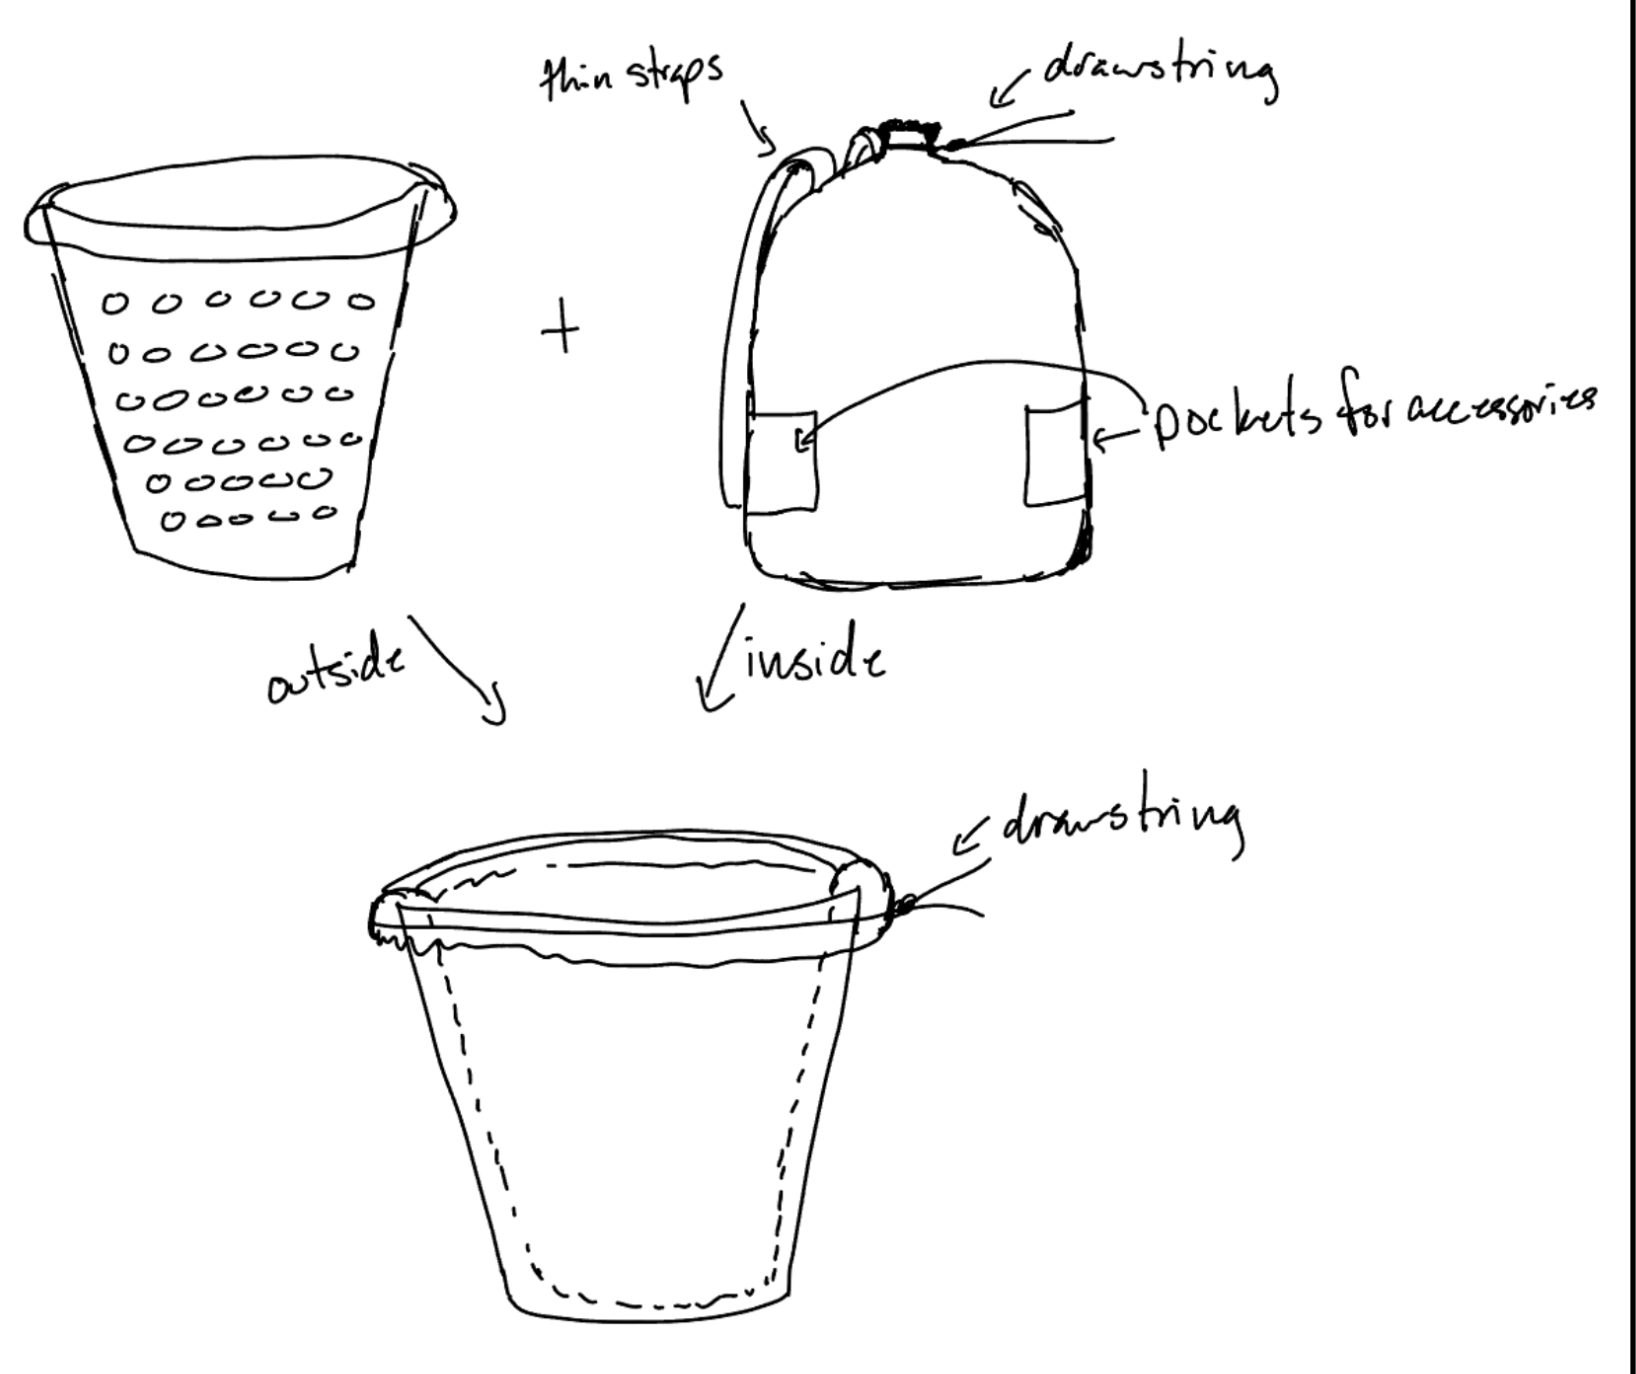 thin straps
drawstring
+
pockets for accessories
outside
inside
drawstring